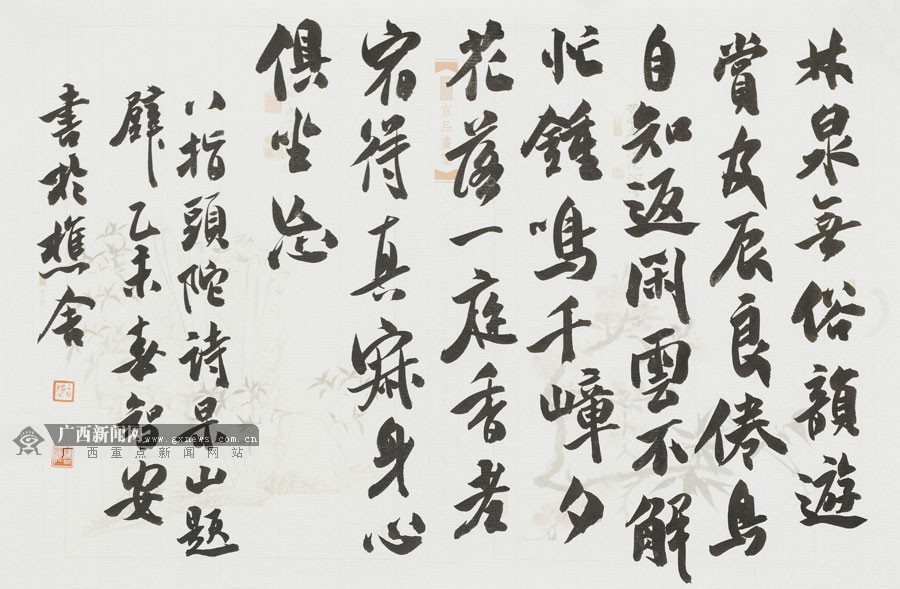 林泉無俗韻遊
賞及辰良倦鳥
自知返閑雲不解
忙鍾鳴千嶂夕
花落一庭香老
宿得真寂身心
俱坐忘
八指頭陀詩杲山題
壁乙未春智安
書於樵舍
广西新闻网
www.gxnews.com.cn
广西重点新闻网站